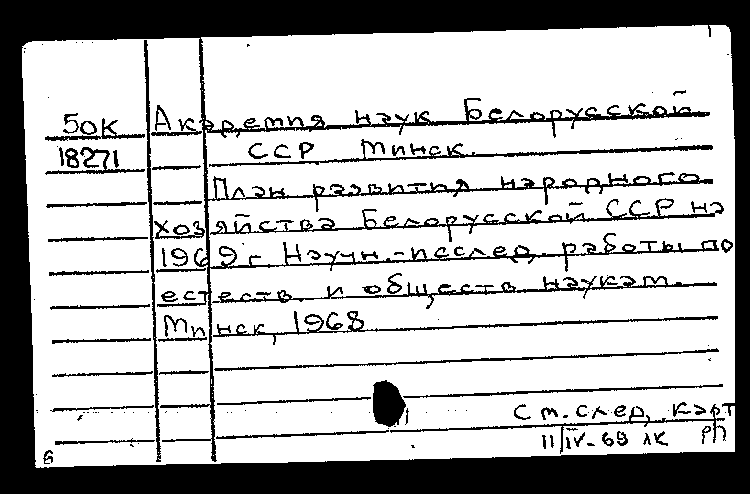 50К Академия наук Белорусской
18271 ССР. Минск.
План развития народного
хозяйства Белорусской ССР на
1969 г. Научн.-исслед. работы по
естеств. и обществ. наукам.
Минск, 1968
См. след. карт
11/IV-69 лк
6